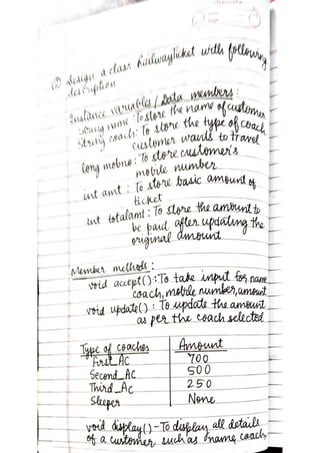 Design a class RailwayTicket with following
description
Instance variables / Data members :
String name : To store the name of customer
String coach : To store the type of coach
customer wants to travel
long mobno : To store customer's
mobile number
int amt : To store basic amount of
ticket
int totalamt : To store the amount to
be paid after updating the
original amount
Member methods :
void accept() : To take input for name
coach, mobile number, amount
void update() : To update the amount
as per the coach selected
Type of coaches Amount
First_AC 700
Second_AC 500
Third_AC 250
Sleeper None
void display() - To display all details
of a customer such as name coach,